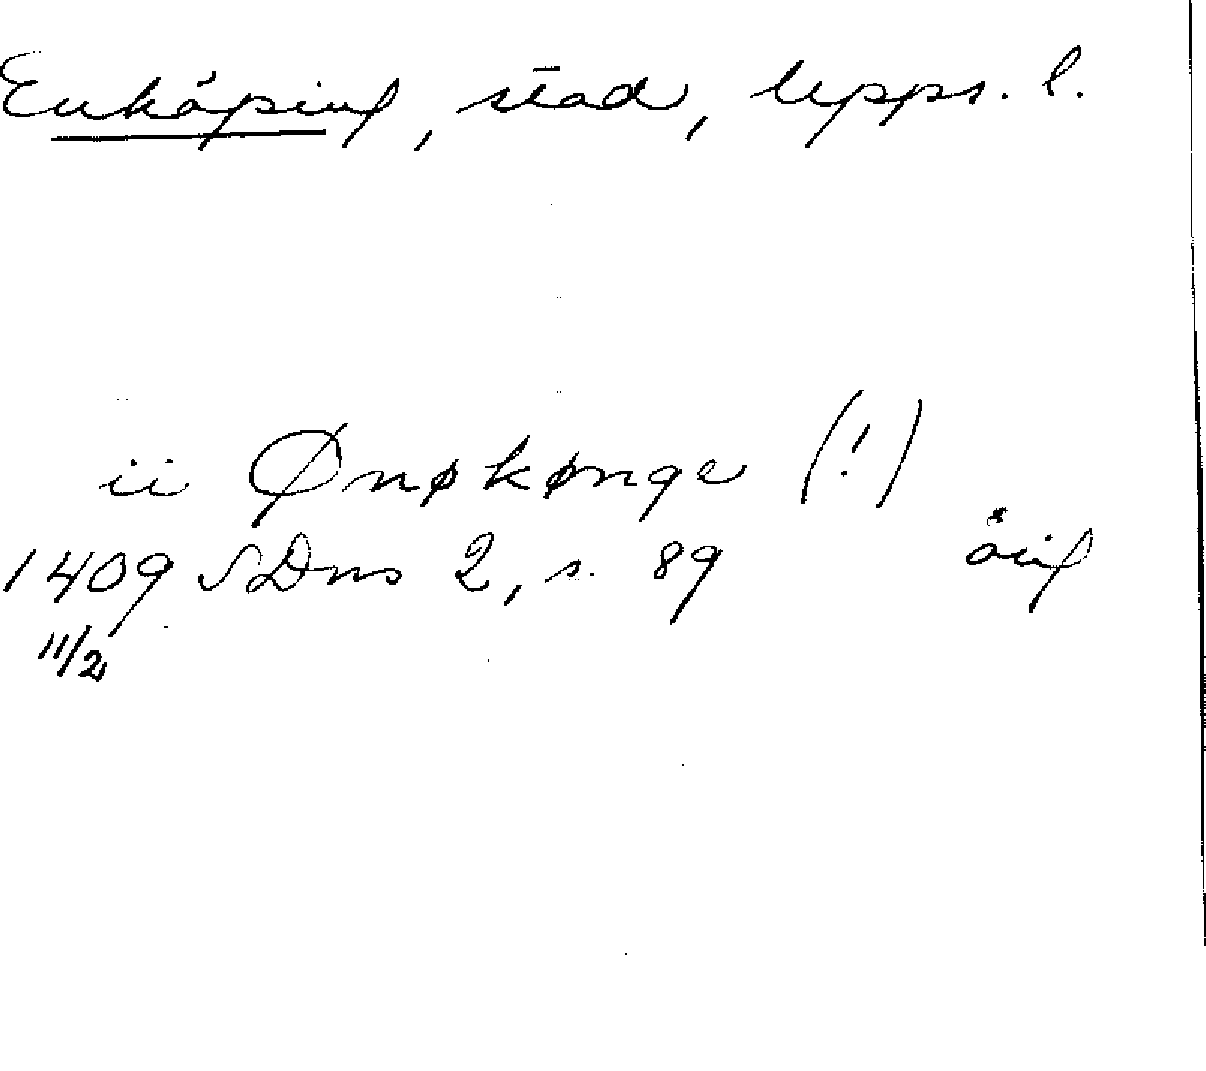 Enköping, stad, Upps. l.
ii Ønøkønge (!)
1409 SDns 2, s. 89
11/2